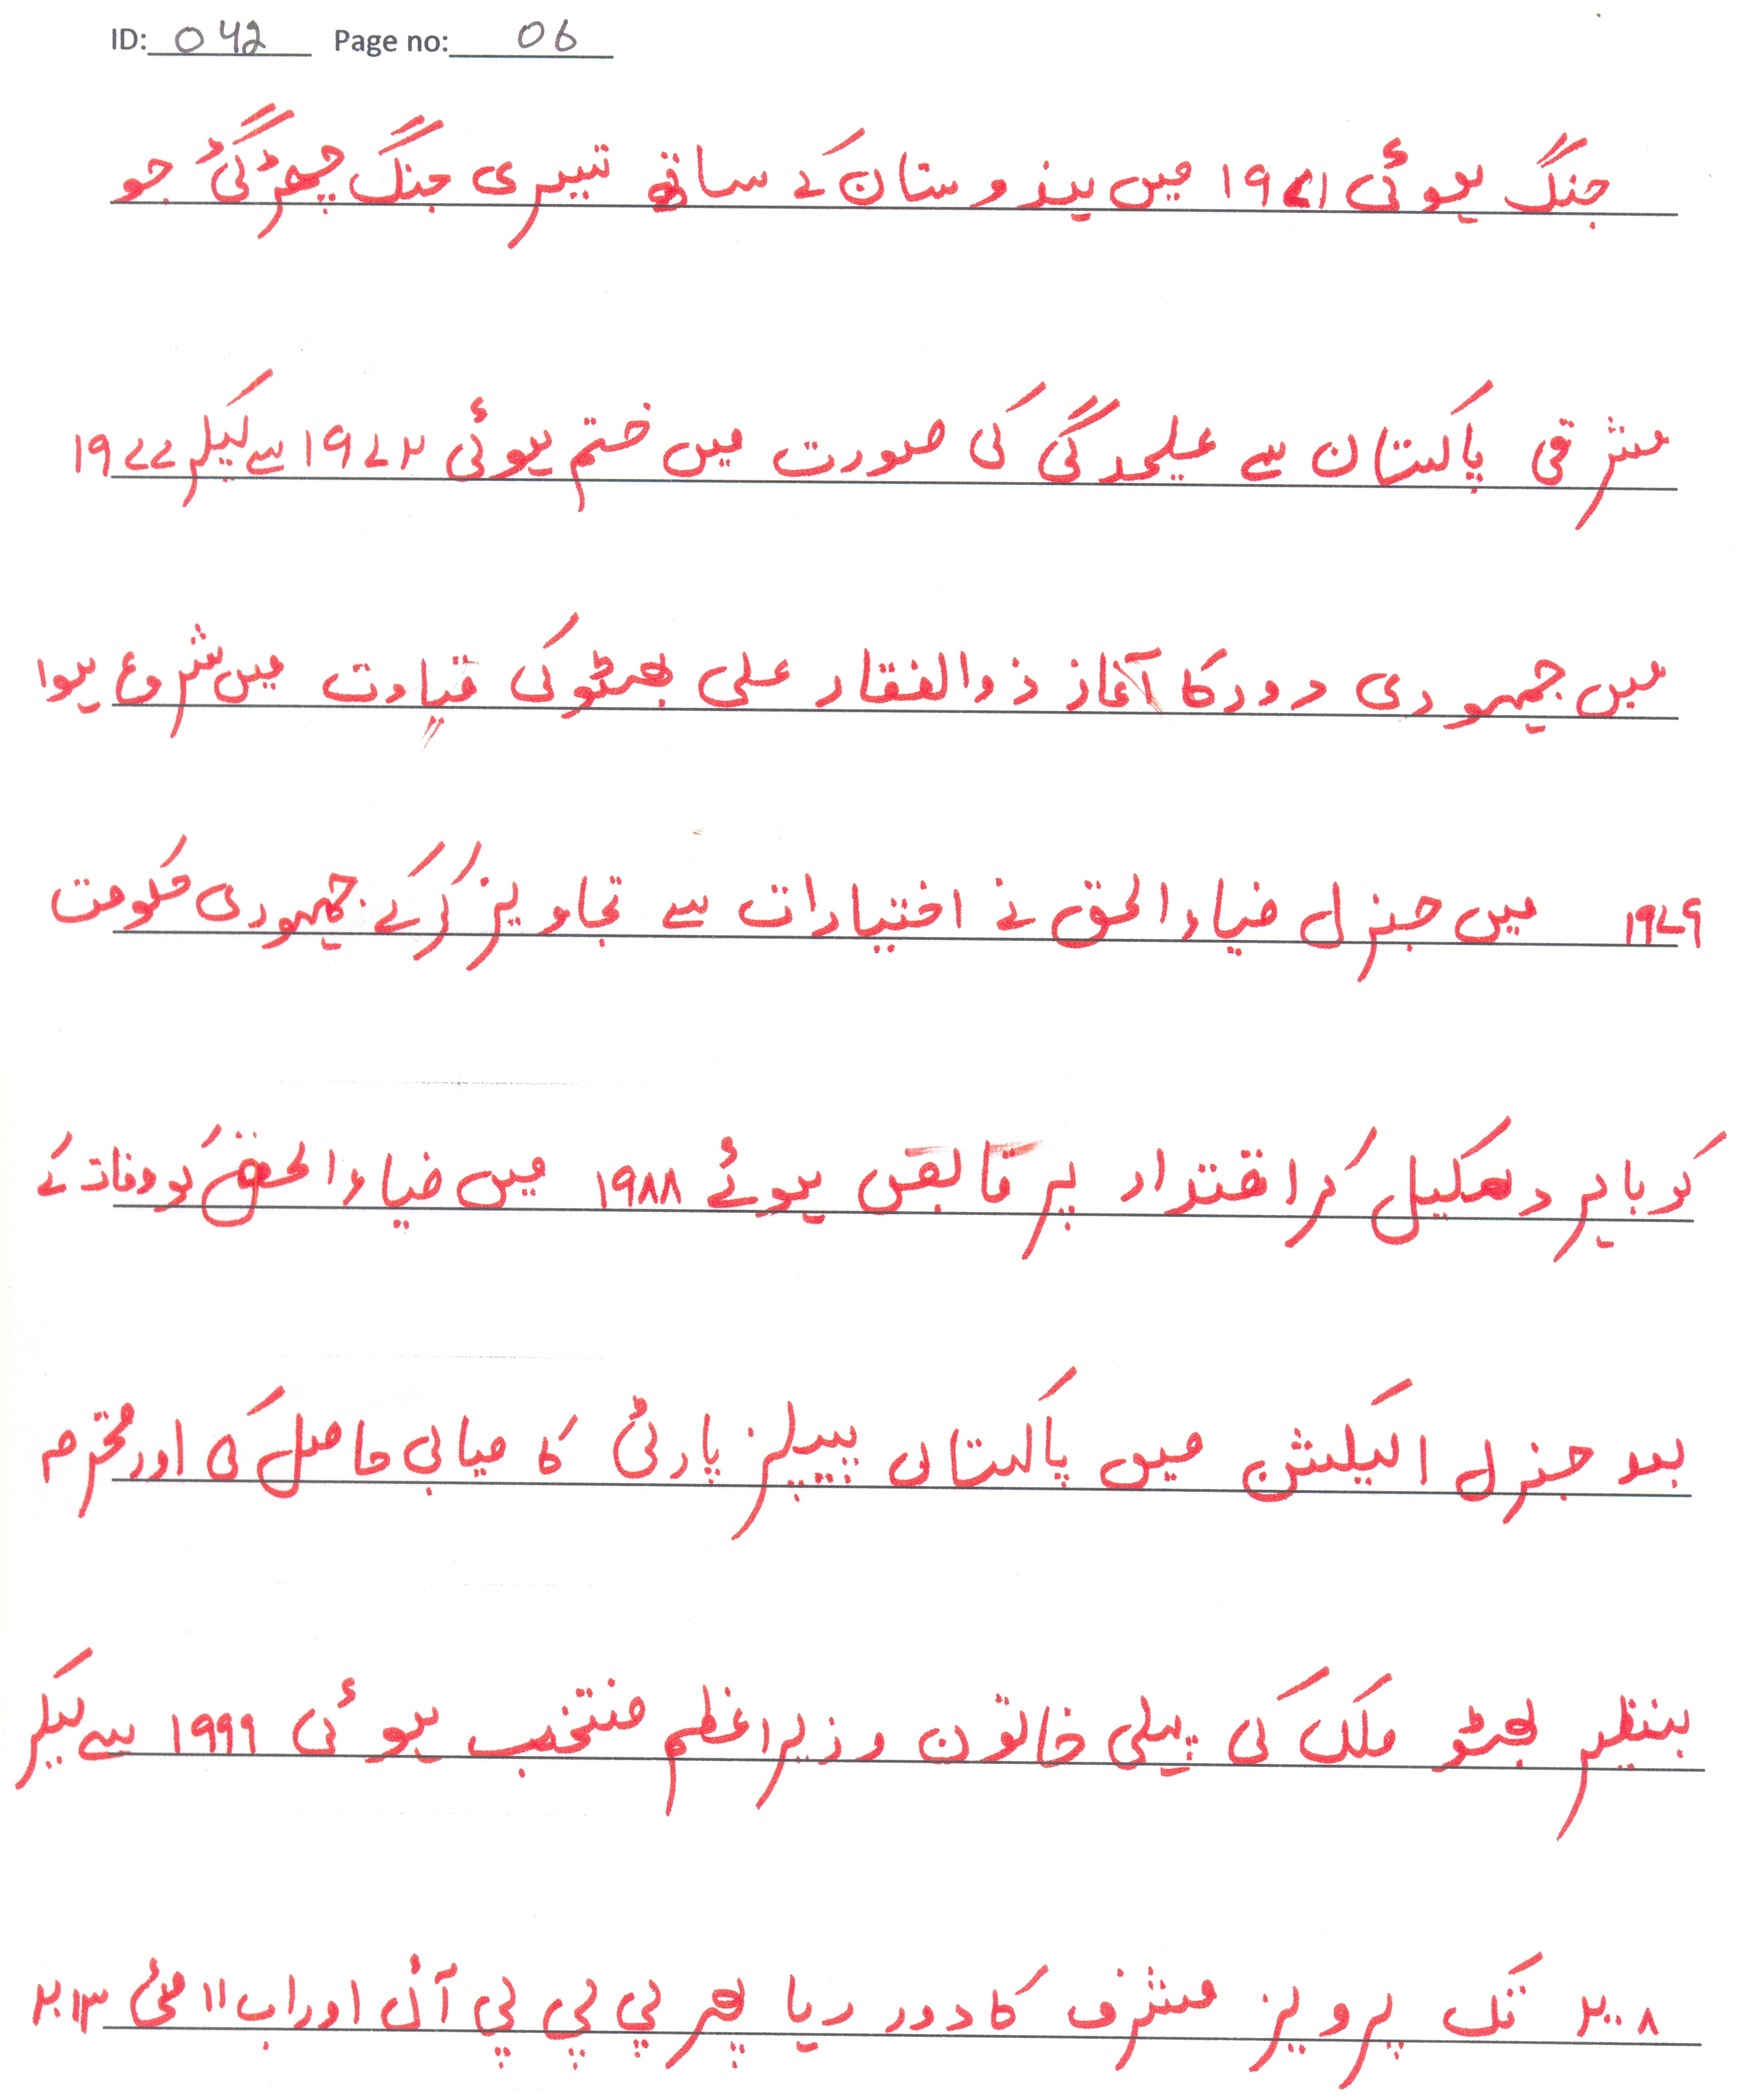 ID: 042 Page no: 06
جنگ ہوئی ۱۹۷۱ میں ہندوستان کے ساتھ تیسری جنگ چھڑ گئی جو
مشرقی پاکستان سے علیحدگی کی صورت میں ختم ہوئی ۱۹۷۲ سے لیکر ۱۹۷۷
میں جمہوری دور کا آغاز ذوالفقار علی بھٹو کی قیادت میں شروع ہوا
۱۹۷۹ میں جنرل ضیاءالحق نے اختیارات سے تجاویز کر کے جمہوری حکومت
کو باہر دھکیل کر اقتدار پر قابض ہوئے ۱۹۸۸ میں ضیاءالحق کو وفات کے
بعد جنرل الیکشن میں پاکستان پیپلز پارٹی کامیابی حاصل کی اور محترم
بینظیر بھٹو ملک کی پہلی خاتون وزیراعظم منتخب ہوئی ۱۹۹۹ سے لیکر
۲۰۰۸ تک پرویز مشرف کا دور رہا پھر پی پی پی آئی اور اب ۱۱ مئی ۲۰۱۳